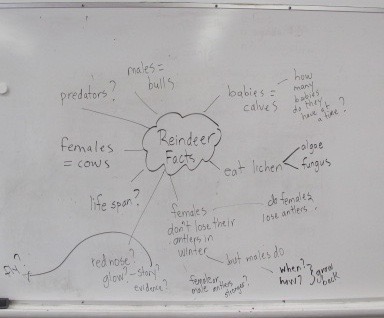 males =
bulls
predators?
babies =
calves
how
many
babies
do they
have at
a time?
Reindeer
Facts
females
= cows
eat lichen
algae
fungus
life span?
females
don't lose their
antlers in
winter
do females
lose antlers
but males do
when?
how?
grow
back
red nose?
glow? - story?
evidence?
female or
male antlers
stronger?